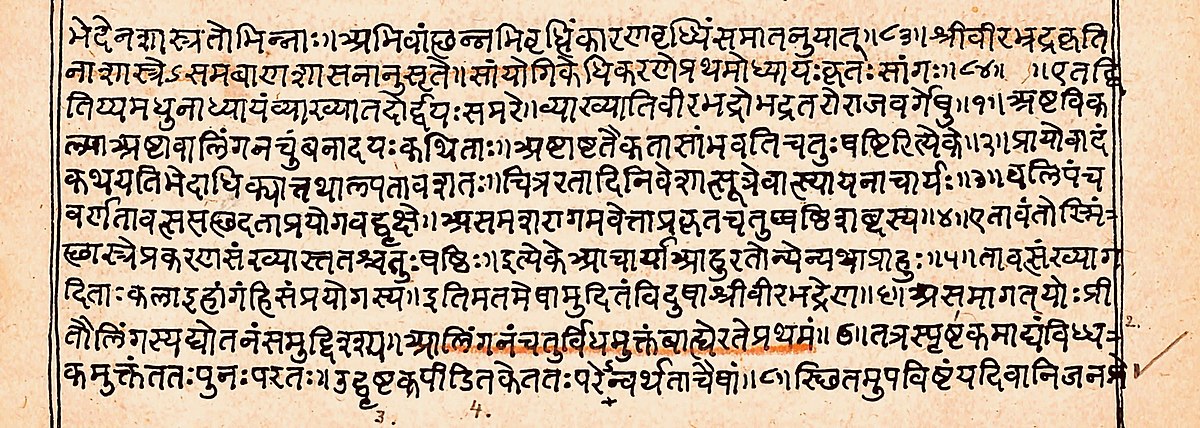 भेदेनशास्त्रतोभिन्नाः॥अभिवांछन्नभिवृद्धिंकारणवृध्धिंसमातनुयात्॥८३॥श्रीवीरभद्रकृति
नाशास्त्रेऽसमबाणशासनानुसृतै॥सांयोगिकेधिकरणेप्रथमोध्यायःकृतःसांगः॥८४॥ ॥एतद्द्वि
तिय्यमधुनाध्यायंव्याख्यातदोर्द्वयःसमरे॥व्याख्यातिवीरभद्रोभद्रतरोराजवर्गेषु॥१॥अष्टविक
ल्पाअष्टावालिंगनचुंबनादयःकथिताः॥अष्टाष्टतैकतासांभवतिचतुःषष्टिरित्येके॥२॥प्रायोवादं
कथयतिभेदाधिक्यात्तथाल्पतावशतः॥चित्ररतादिनिवेशात्सूत्रेवात्स्यायनाचार्यः॥३॥वलिपंच
वर्णतावत्ससछदताप्रयोगवद्वृक्षे॥असमशरागमवेत्ताप्रकृतचतुष्षष्ठिशब्दस्य॥४॥एतावंतोस्मिं
छास्त्रेप्रकरणसंख्यास्ततश्चतुःषष्ठिः॥इत्येकेआचार्याआहुरतोन्येन्यथाप्राहुः॥५॥तावत्संख्याग
दिताःकलाइहांगंहिसंप्रयोगस्य॥इतिमतमेषामुदितंविदुषाश्रीवीरभद्रेण॥६॥असमागतयोःप्री
तौलिंगस्यद्योतनंसमुद्दिश्य॥आलिंगनंचतुर्विधमुक्तंबाह्येरतेप्रथमं॥७॥तत्रस्पृष्टकमाद्यंविध्य
कमुक्तंततःपुनःपरतः॥उद्घृष्टकपीडितकेततःपरेन्वर्थताचैषां॥८॥स्थितमुपविष्टंयदिवानिजनप्रे
2.
3. 4.